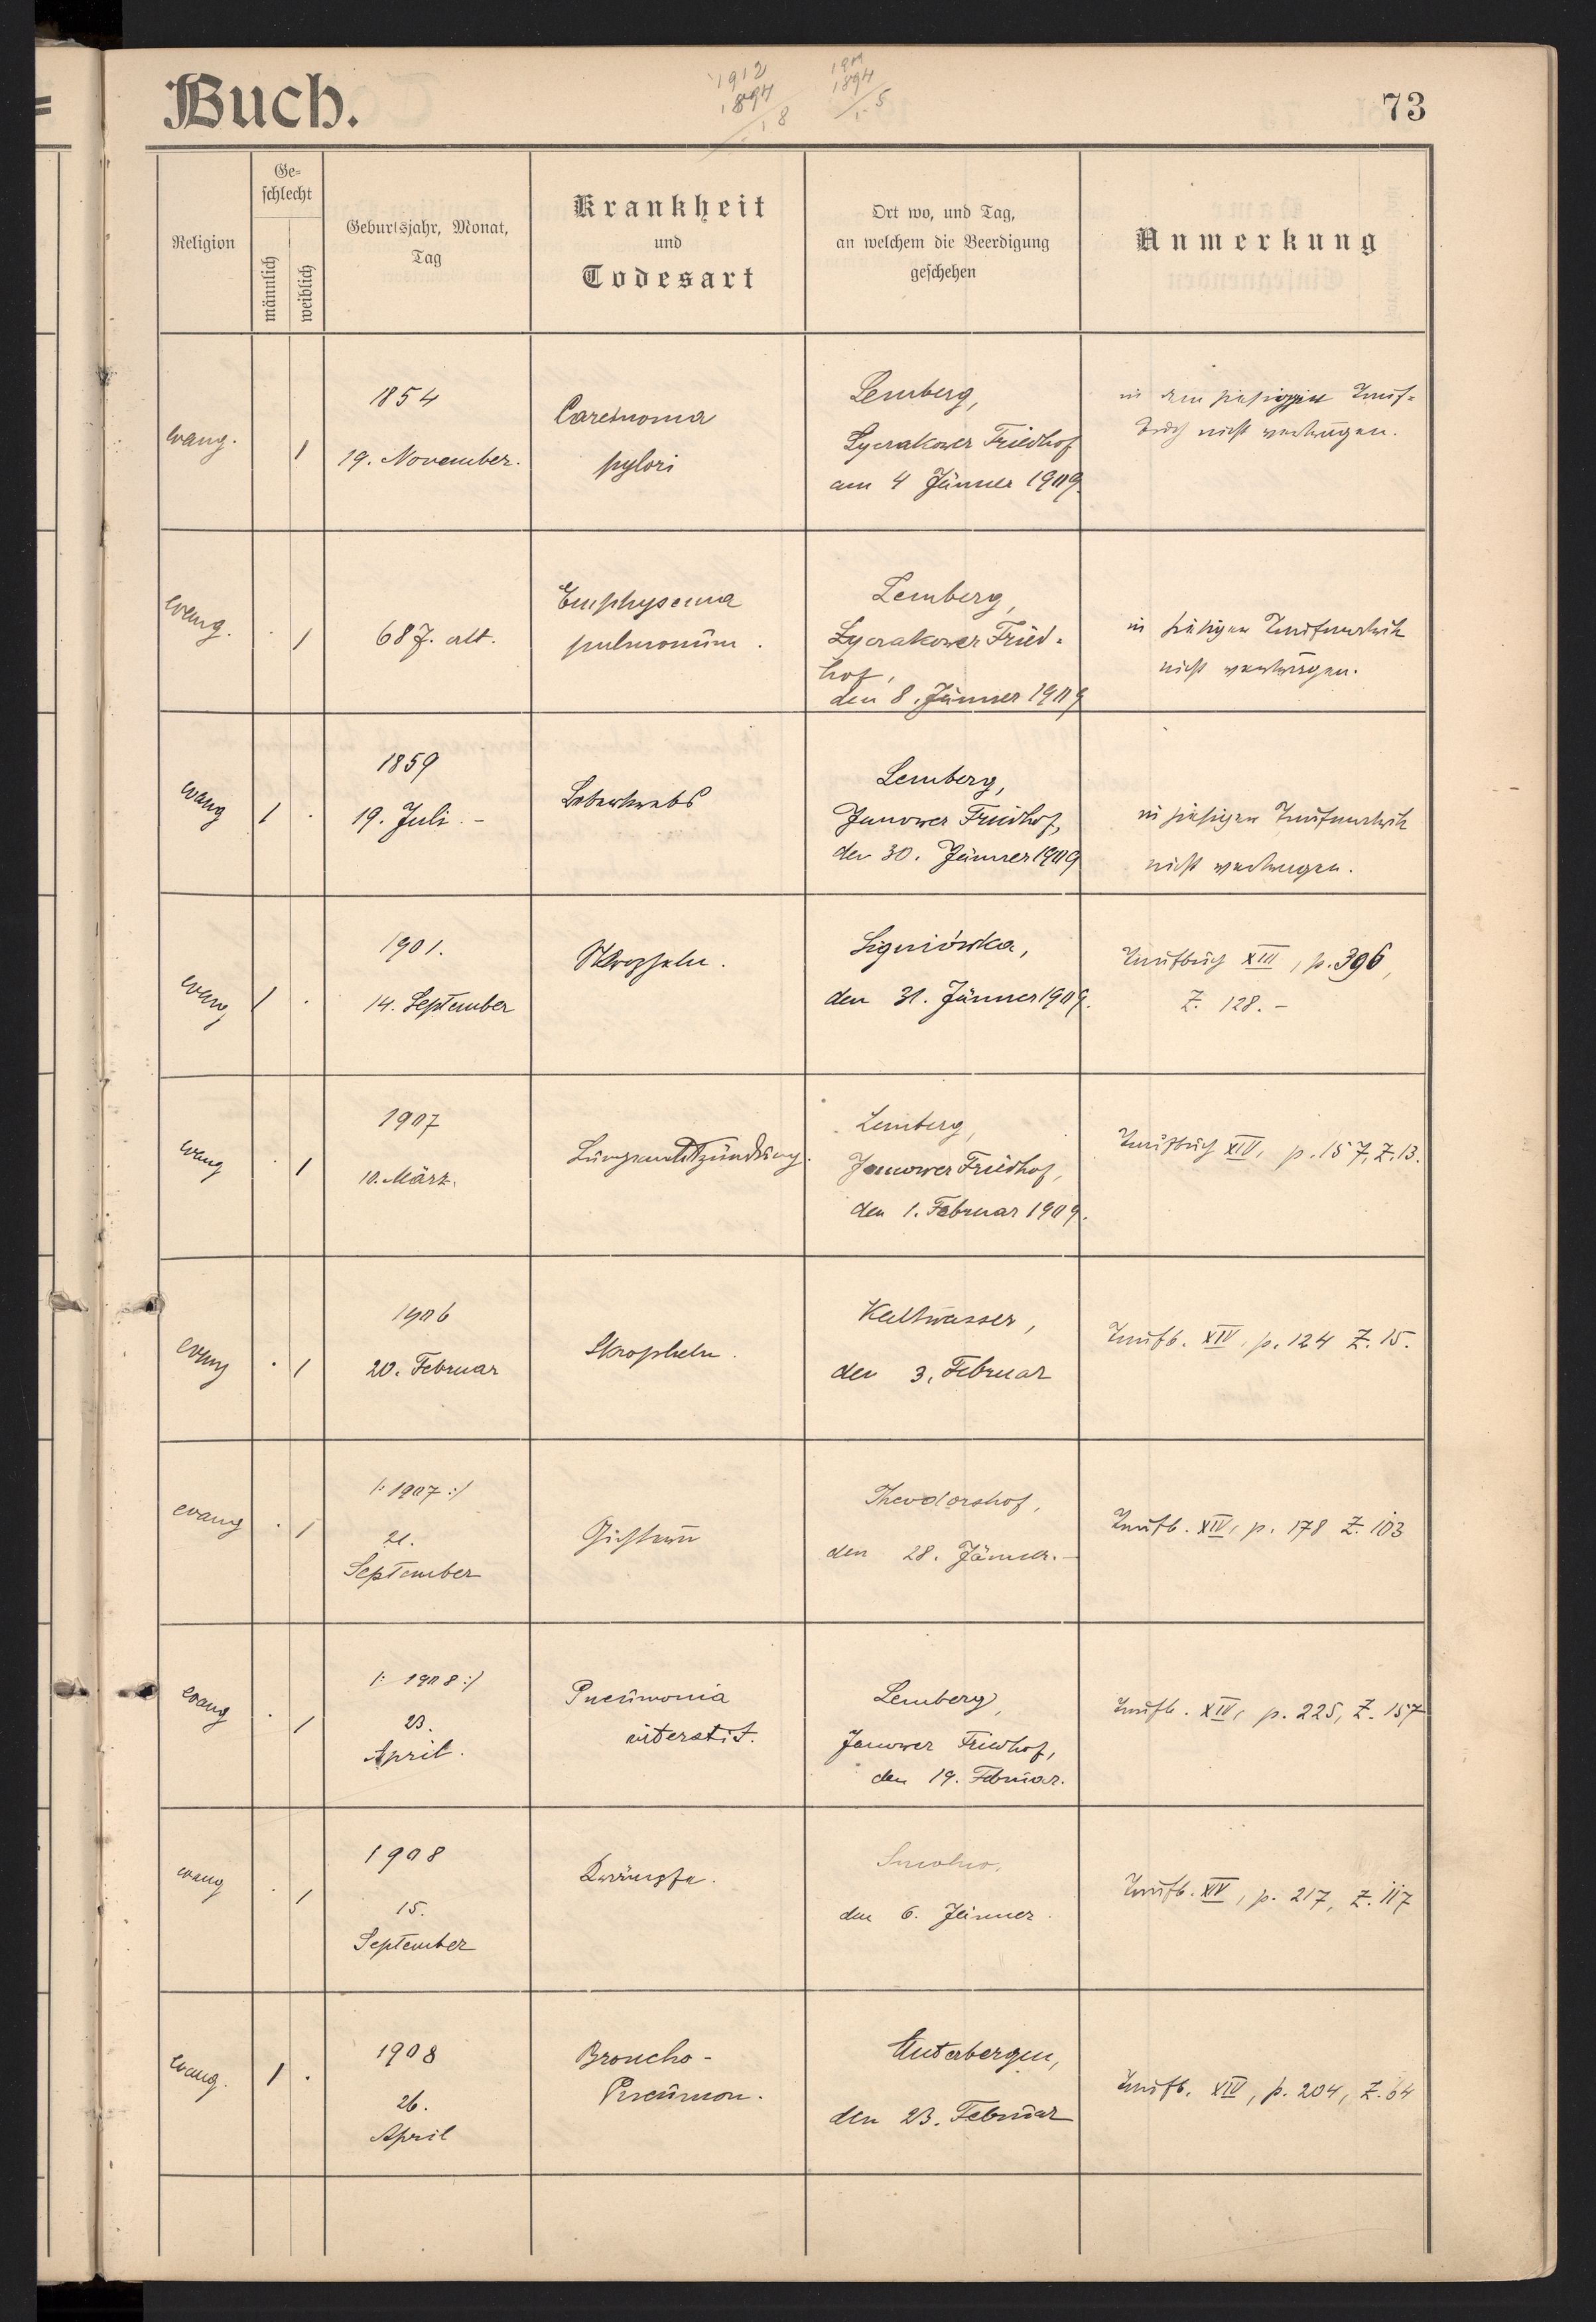 Buch.
1912
1894
18
1909
1894
15
73
Religion
Ge-
schlecht
männlich
weiblich
Geburtsjahr, Monat,
Tag
Krankheit
und
Todesart
Ort wo, und Tag,
an welchem die Beerdigung
geschehen
Anmerkung
evang.
1
1854
19. November.
Carcinoma
pylori
Lemberg,
Lyczakower Friedhof
am 4 Jänner 1909.
in dem hiesigen Tauf=
buch nicht
evang.
. 1
68 J. alt.
Emphysema
pulmonum.
Lemberg,
Lyczakower Fried-
hof,
den 8. Jänner 1909
in hiesiger Taufmatrik
nicht
evang
1 .
1859
19. Juli. -
Leberkrebs
Lemberg,
Janower Friedhof,
den 30. Jänner 1909
in hiesiger Taufmatrik
nicht
evang
1 .
1901.
14. September
Skropheln.
Signiówka,
den 31. Jänner 1909.
Taufbuch XIII, p. 396,
Z. 128. -
evang
. 1
1907
10. März.
Lungenentzündung.
Lemberg,
Janower Friedhof,
den 1. Februar 1909.
Taufbuch XIV, p. 157, Z. 13.
evang
. 1
1906
20. Februar
Skropheln.
Kaltwasser,
den 3. Februar
Taufb. XIV, p. 124 Z. 15.
evang
. 1
/: 1907 :/
21.
September
Theodorshof,
den 28. Jänner. -
Taufb. XIV, p. 178 Z. 103
evang
. 1
/: 1908 :/
23.
April.
Pneumonia
interstit.
Lemberg,
Janower Friedhof,
den 19. Februar.
Taufb. XIV, p. 225, Z. 157
evang
. 1
1908
15.
September
Krämpfe.
den 6. Jänner.
Taufb. XIV, p. 217, Z. 117
evang.
1 .
1908
26.
April
Broncho-
Pneumon.
Unterbergen,
den 23. Februar
Taufb. XIV, p. 204, Z. 64